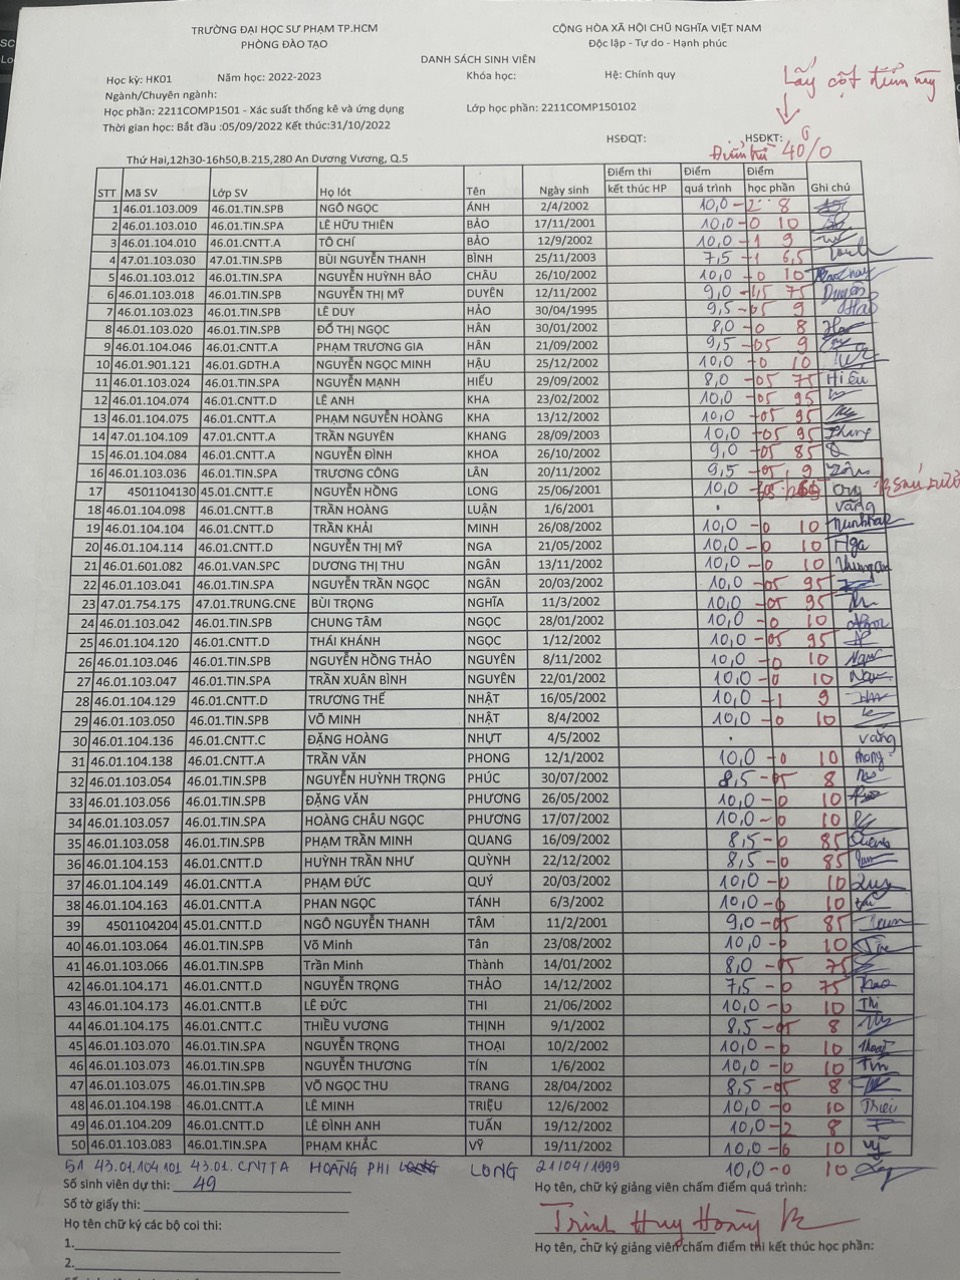 TRƯỜNG ĐẠI HỌC SƯ PHẠM TP.HCM
PHÒNG ĐÀO TẠO
CỘNG HÒA XÃ HỘI CHỦ NGHĨA VIỆT NAM
Độc lập - Tự do - Hạnh phúc
DANH SÁCH SINH VIÊN
Học kỳ: HK01 Năm học: 2022-2023 Khóa học: Hệ: Chính quy
Lấy cột điểm này
Ngành/Chuyên ngành:
Học phần: 2211COMP1501 - Xác suất thống kê và ứng dụng Lớp học phần: 2211COMP150102
Thời gian học: Bắt đầu :05/09/2022 Kết thúc:31/10/2022
HSĐQT: HSĐKT:
40%
Thứ Hai,12h30-16h50,B.215,280 An Dương Vương, Q.5
STT Mã SV Lớp SV Họ lót Tên Ngày sinh Điểm thi kết thúc HP Điểm quá trình Điểm học phần Ghi chú
1 46.01.103.009 46.01.TIN.SPB NGÔ NGỌC ÁNH 2/4/2002 10,0 -2 8
2 46.01.103.010 46.01.TIN.SPA LÊ HỮU THIÊN BẢO 17/11/2001 10,0 -0 10
3 46.01.104.010 46.01.CNTT.A TÔ CHÍ BẢO 12/9/2002 10,0 -1 9
4 47.01.103.030 47.01.TIN.SPB BÙI NGUYỄN THANH BÌNH 25/11/2003 7,5 -1 6,5
5 46.01.103.012 46.01.TIN.SPA NGUYỄN HUỲNH BẢO CHÂU 26/10/2002 10,0 -0 10
6 46.01.103.018 46.01.TIN.SPB NGUYỄN THỊ MỸ DUYÊN 12/11/2002 9,0 -1,5 75 Duyên
7 46.01.103.023 46.01.TIN.SPB LÊ DUY HẢO 30/04/1995 9,5 -05 9 Hảo
8 46.01.103.020 46.01.TIN.SPB ĐỖ THỊ NGỌC HÂN 30/01/2002 8,0 -0 8
9 46.01.104.046 46.01.CNTT.A PHẠM TRƯƠNG GIA HÂN 21/09/2002 9,5 -05 9
10 46.01.901.121 46.01.GDTH.A NGUYỄN NGỌC MINH HẬU 25/12/2002 10,0 -0 10
11 46.01.103.024 46.01.TIN.SPA NGUYỄN MẠNH HIẾU 29/09/2002 8,0 -05 75 Hiếu
12 46.01.104.074 46.01.CNTT.D LÊ ANH KHA 23/02/2002 10,0 -05 95
13 46.01.104.075 46.01.CNTT.A PHẠM NGUYỄN HOÀNG KHA 13/12/2002 10,0 -05 95
14 47.01.104.109 47.01.CNTT.A TRẦN NGUYÊN KHANG 28/09/2003 10,0 -05 95 Khang
15 46.01.104.084 46.01.CNTT.A NGUYỄN ĐÌNH KHOA 26/10/2002 9,0 -05 85
16 46.01.103.036 46.01.TIN.SPA TRƯƠNG CÔNG LÂN 20/11/2002 9,5 -05 9 Lân
17 4501104130 45.01.CNTT.E NGUYỄN HỒNG LONG 25/06/2001 10,0
18 46.01.104.098 46.01.CNTT.B TRẦN HOÀNG LUẬN 1/6/2001 vắng
19 46.01.104.104 46.01.CNTT.D TRẦN KHẢI MINH 26/08/2002 10,0 -0 10
20 46.01.104.114 46.01.CNTT.D NGUYỄN THỊ MỸ NGA 21/05/2002 10,0 -0 10 Nga
21 46.01.601.082 46.01.VAN.SPC DƯƠNG THỊ THU NGÂN 13/11/2002 10,0 -0 10
22 46.01.103.041 46.01.TIN.SPA NGUYỄN TRẦN NGỌC NGÂN 20/03/2002 10,0 -05 95
23 47.01.754.175 47.01.TRUNG.CNE BÙI TRỌNG NGHĨA 11/3/2002 10,0 -05 95
24 46.01.103.042 46.01.TIN.SPB CHUNG TÂM NGỌC 28/01/2002 10,0 -0 10
25 46.01.104.120 46.01.CNTT.D THÁI KHÁNH NGỌC 1/12/2002 10,0 -05 95
26 46.01.103.046 46.01.TIN.SPB NGUYỄN HỒNG THẢO NGUYÊN 8/11/2002 10,0 -0 10
27 46.01.103.047 46.01.TIN.SPA TRẦN XUÂN BÌNH NGUYÊN 22/01/2002 10,0 -0 10
28 46.01.104.129 46.01.CNTT.D TRƯƠNG THẾ NHẬT 16/05/2002 10,0 -1 9
29 46.01.103.050 46.01.TIN.SPB VÕ MINH NHẬT 8/4/2002 10,0 -0 10
30 46.01.104.136 46.01.CNTT.C ĐẶNG HOÀNG NHỰT 4/5/2002 vắng
31 46.01.104.138 46.01.CNTT.A TRẦN VĂN PHONG 12/1/2002 10,0 -0 10 Phong
32 46.01.103.054 46.01.TIN.SPB NGUYỄN HUỲNH TRỌNG PHÚC 30/07/2002 8,5 -05 8
33 46.01.103.056 46.01.TIN.SPB ĐẶNG VĂN PHƯƠNG 26/05/2002 10,0 -0 10
34 46.01.103.057 46.01.TIN.SPA HOÀNG CHÂU NGỌC PHƯƠNG 17/07/2002 10,0 -0 10
35 46.01.103.058 46.01.TIN.SPB PHẠM TRẦN MINH QUANG 16/09/2002 8,5 -0 85 Quang
36 46.01.104.153 46.01.CNTT.D HUỲNH TRẦN NHƯ QUỲNH 22/12/2002 8,5 -0 85
37 46.01.104.149 46.01.CNTT.A PHẠM ĐỨC QUÝ 20/03/2002 10,0 -0 10 Quý
38 46.01.104.163 46.01.CNTT.A PHAN NGỌC TÁNH 6/3/2002 10,0 -0 10
39 4501104204 45.01.CNTT.D NGÔ NGUYỄN THANH TÂM 11/2/2001 9,0 -05 85
40 46.01.103.064 46.01.TIN.SPB Võ Minh Tân 23/08/2002 10,0 -0 10
41 46.01.103.066 46.01.TIN.SPB Trần Minh Thành 14/01/2002 8,0 -05 75
42 46.01.104.171 46.01.CNTT.D NGUYỄN TRỌNG THẢO 14/12/2002 7,5 -0 75 Thảo
43 46.01.104.173 46.01.CNTT.B LÊ ĐỨC THI 21/06/2002 10,0 -0 10 Thi
44 46.01.104.175 46.01.CNTT.C THIỀU VƯƠNG THỊNH 9/1/2002 8,5 -05 8
45 46.01.103.070 46.01.TIN.SPA NGUYỄN TRỌNG THOẠI 10/2/2002 10,0 -0 10 Thoại
46 46.01.103.073 46.01.TIN.SPB NGUYỄN THƯƠNG TÍN 1/6/2002 10,0 -0 10 Tín
47 46.01.103.075 46.01.TIN.SPB VÕ NGỌC THU TRANG 28/04/2002 8,5 -05 8
48 46.01.104.198 46.01.CNTT.A LÊ MINH TRIỆU 12/6/2002 10,0 -0 10 Triệu
49 46.01.104.209 46.01.CNTT.D LÊ ĐÌNH ANH TUẤN 19/12/2002 10,0 -2 8
50 46.01.103.083 46.01.TIN.SPA PHẠM KHẮC VỸ 19/11/2002 10,0 -0 10 Vỹ
51 43.01.104.101 43.01.CNTTA HOÀNG PHI LONG 21/04/1999 10,0 -0 10
Số sinh viên dự thi: 49
Họ tên, chữ ký giảng viên chấm điểm quá trình:
Số tờ giấy thi:
Họ tên chữ ký các bộ coi thi:
Trịnh Huy Hoàng
1.
Họ tên, chữ ký giảng viên chấm điểm thi kết thúc học phần:
2.